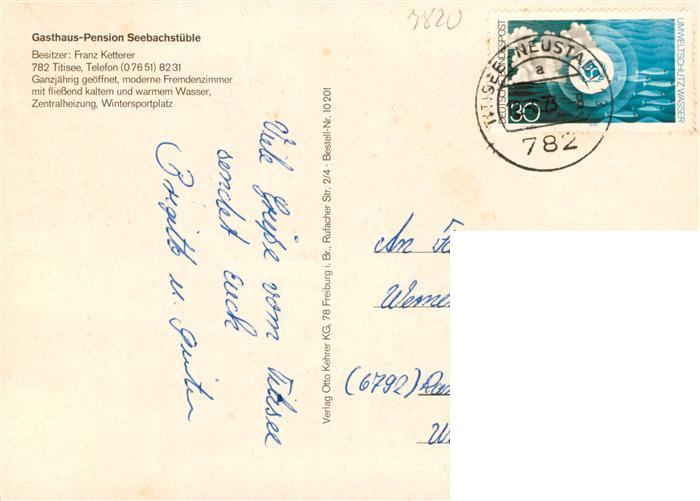 7820
Gasthaus-Pension Seebachstüble
Besitzer: Franz Ketterer
782 Titisee, Telefon (0 76 51) 82 31
Ganzjährig geöffnet, moderne Fremdenzimmer
mit fließend kaltem und warmem Wasser,
Zentralheizung, Wintersportplatz
DEUTSCHE BUNDESPOST
UMWELTSCHUTZ WASSER
30
TITISEE-NEUSTADT
a
782
Verlag Otto Kehrer KG, 78 Freiburg i. Br., Rufacher Str. 2/4 · Bestell-Nr. 10 201
Viele Grüße vom Titisee
sendet Euch
Brigitte u. Günter
An
Werner
(6792)